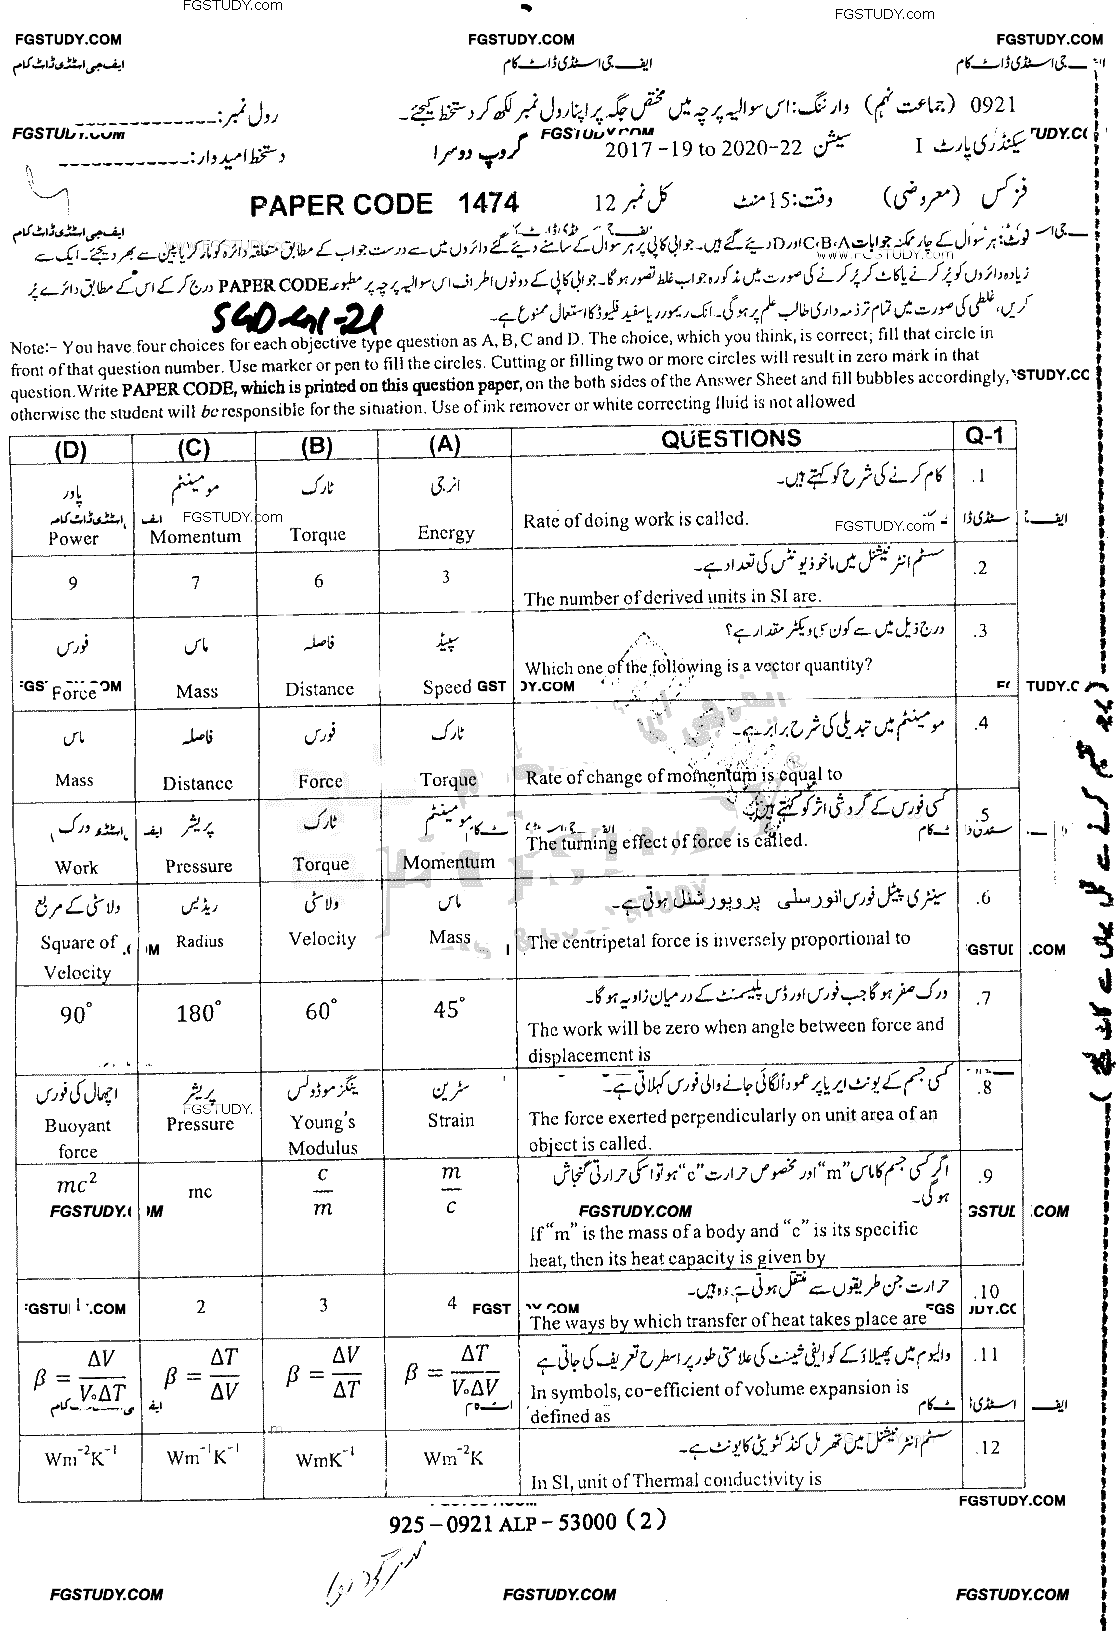 FGSTUDY.com
FGSTUDY.com
FGSTUDY.COM FGSTUDY.COM FGSTUDY.COM
ایف جی اسٹڈی ڈاٹ کام ایف جی اسٹڈی ڈاٹ کام جی اسٹڈی ڈاٹ کام
0921 (جماعت نہم) وارننگ: اس سوالیہ پرچہ میں مختص جگہ پر اپنا رول نمبر لکھ کر دستخط کیجئے۔ رول نمبر: ------------
FGSTUDY.COM FGSTUDY.COM TUDY.CC
سیکنڈری پارٹ I سیشن 2017-19 to 2020-22 گروپ دوسرا دستخط امیدوار: ------------
فزکس (معروضی) وقت: 15 منٹ کل نمبر 12 PAPER CODE 1474
نوٹ: ہر سوال کے چار ممکنہ جوابات A،B،C اور D دیئے گئے ہیں۔ جوابی کاپی پر ہر سوال کے سامنے دیئے گئے دائروں میں سے درست جواب کے مطابق متعلقہ دائرہ کو مارکر یا پین سے بھر دیجئے۔ ایک سے
زیادہ دائروں کو پر کرنے یا کاٹ کر پر کرنے کی صورت میں مذکورہ جواب غلط تصور ہوگا۔ جوابی کاپی کے دونوں اطراف اس سوالیہ پرچہ پر مطبوعہ PAPER CODE درج کر کے اس کے مطابق دائرے پر
کریں، غلطی کی صورت میں تمام تر ذمہ داری طالب علم پر ہوگی۔ انک ریموور یا سفید فلیوڈ کا استعمال ممنوع ہے۔
SGD-G1-21
Note:- You have four choices for each objective type question as A, B, C and D. The choice, which you think, is correct; fill that circle in
front of that question number. Use marker or pen to fill the circles. Cutting or filling two or more circles will result in zero mark in that
question. Write PAPER CODE, which is printed on this question paper, on the both sides of the Answer Sheet and fill bubbles accordingly, STUDY.CC
otherwise the student will be responsible for the situation. Use of ink remover or white correcting fluid is not allowed
(D) (C) (B) (A) QUESTIONS Q-1
پاور مومینٹم ٹارک انرجی کام کرنے کی شرح کو کہتے ہیں۔ .1
Power Momentum Torque Energy Rate of doing work is called.
FGSTUDY.com FGSTUDY.com
9 7 6 3 سسٹم انٹرنیشنل میں ماخوذ یونٹس کی تعداد ہے۔ .2
The number of derived units in SI are.
فورس ماس فاصلہ سپیڈ درج ذیل میں سے کون سی ویکٹر مقدار ہے؟ .3
Force Mass Distance Speed Which one of the following is a vector quantity?
ماس فاصلہ فورس ٹارک مومینٹم میں تبدیلی کی شرح برابر ہے۔ .4
Mass Distance Force Torque Rate of change of momentum is equal to
ورک پریشر ٹارک مومینٹم کسی فورس کے گردشی اثر کو کہتے ہیں۔ .5
Work Pressure Torque Momentum The turning effect of force is called.
ولاسٹی کے مربع ریڈیس ولاسٹی ماس سینٹری پیٹل فورس انورسلی پروپورشنل ہوتی ہے۔ .6
Square of Radius Velocity Mass The centripetal force is inversely proportional to
Velocity
90° 180° 60° 45° ورک صفر ہوگا جب فورس اور ڈس پلیسمنٹ کے درمیان زاویہ ہوگا۔ .7
The work will be zero when angle between force and
displacement is
اچھال کی فورس پریشر ینگز موڈولس سٹرین کسی جسم کے یونٹ ایریا پر عموداً لگائی جانے والی فورس کہلاتی ہے۔ .8
Buoyant Pressure Young's Strain The force exerted perpendicularly on unit area of an
force Modulus object is called.
mc² mc c/m m/c اگر کسی جسم کا ماس "m" اور مخصوص حرارت "c" ہو تو اسکی حرارتی گنجائش .9
ہوگی۔
FGSTUDY.COM FGSTUDY.COM GSTUD .COM
If "m" is the mass of a body and "c" is its specific
heat, then its heat capacity is given by
1 2 3 4 حرارت جن طریقوں سے منتقل ہوتی ہے۔ وہ ہیں۔ .10
The ways by which transfer of heat takes place are
β = ΔV/V₀ΔT β = ΔT/ΔV β = ΔV/ΔT β = ΔT/V₀ΔV والیوم میں پھیلاؤ کے کوایفی شینٹ کی علامتی طور پر اسطرح تعریف کی جاتی ہے .11
In symbols, co-efficient of volume expansion is
defined as
Wm⁻²K⁻¹ Wm⁻¹K⁻¹ WmK⁻¹ Wm⁻²K سسٹم انٹرنیشنل میں تھرمل کنڈکٹویٹی کا یونٹ ہے۔ .12
In SI, unit of Thermal conductivity is
FGSTUDY.COM
925 - 0921 ALP - 53000 (2)
FGSTUDY.COM FGSTUDY.COM FGSTUDY.COM